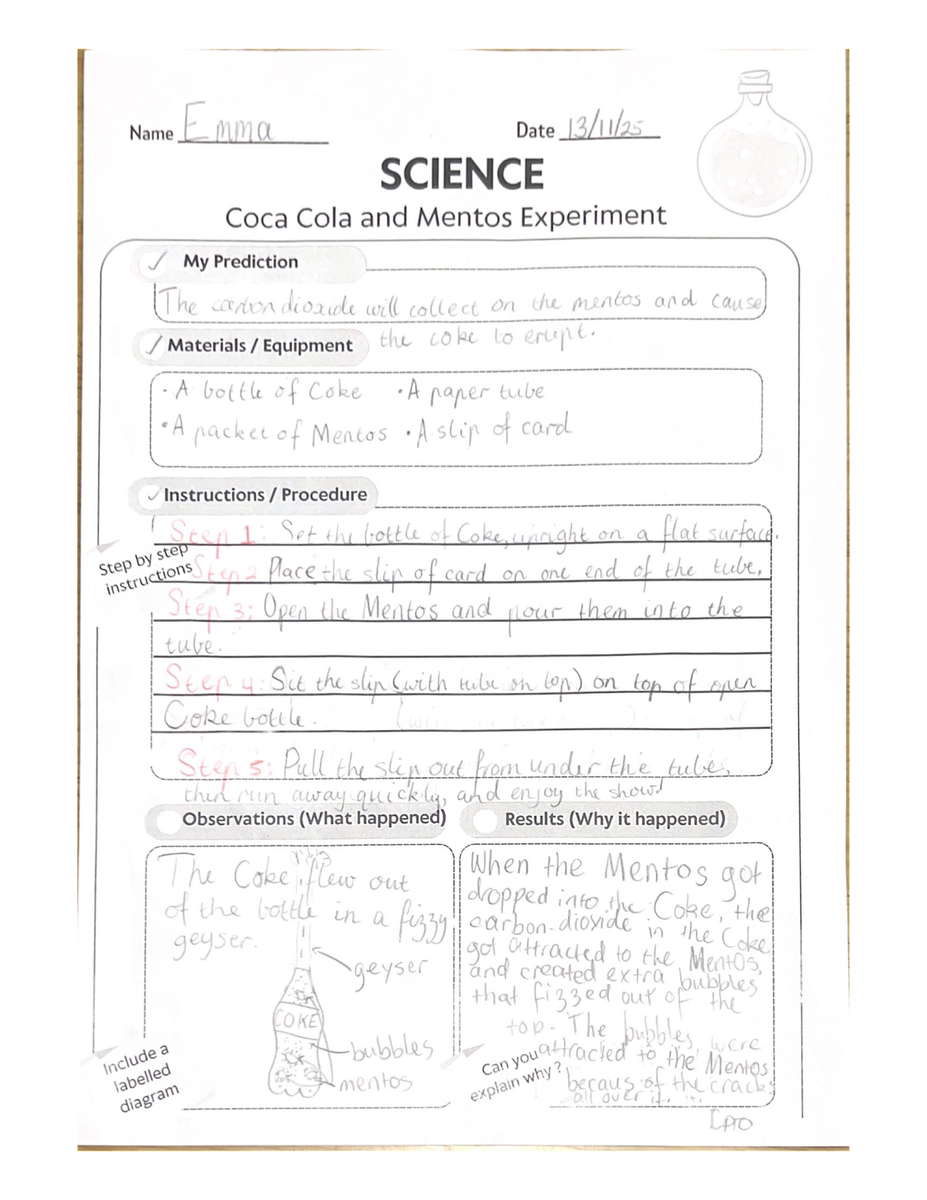 Name Emma Date 13/11/25
SCIENCE
Coca Cola and Mentos Experiment
My Prediction
The carbon dioxide will collect on the mentos and cause
the coke to erupt.
Materials / Equipment
• A bottle of Coke • A paper tube
• A packet of Mentos • A slip of card
Instructions / Procedure
Step by step
instructions
Step 1: Set the bottle of Coke, upright on a flat surface.
Step 2 Place the slip of card on one end of the tube,
Step 3: Open the Mentos and pour them into the
tube.
Step 4: Sit the slip (with tube on top) on top of open
Coke bottle.
Step 5: Pull the slip out from under the tube,
then run away quickly, and enjoy the show!
Observations (What happened)
The Coke flew out
of the bottle in a fizzy
geyser.
geyser
COKE
bubbles
mentos
Include a
labelled
diagram
Results (Why it happened)
When the Mentos got
dropped into the Coke, the
carbon-dioxide in the Coke
got attracted to the Mentos,
and created extra bubbles
that fizzed out of the
top. The bubbles were
attracted to the Mentos
becaus of the cracks
all over it.
Can you
explain why?
PTO